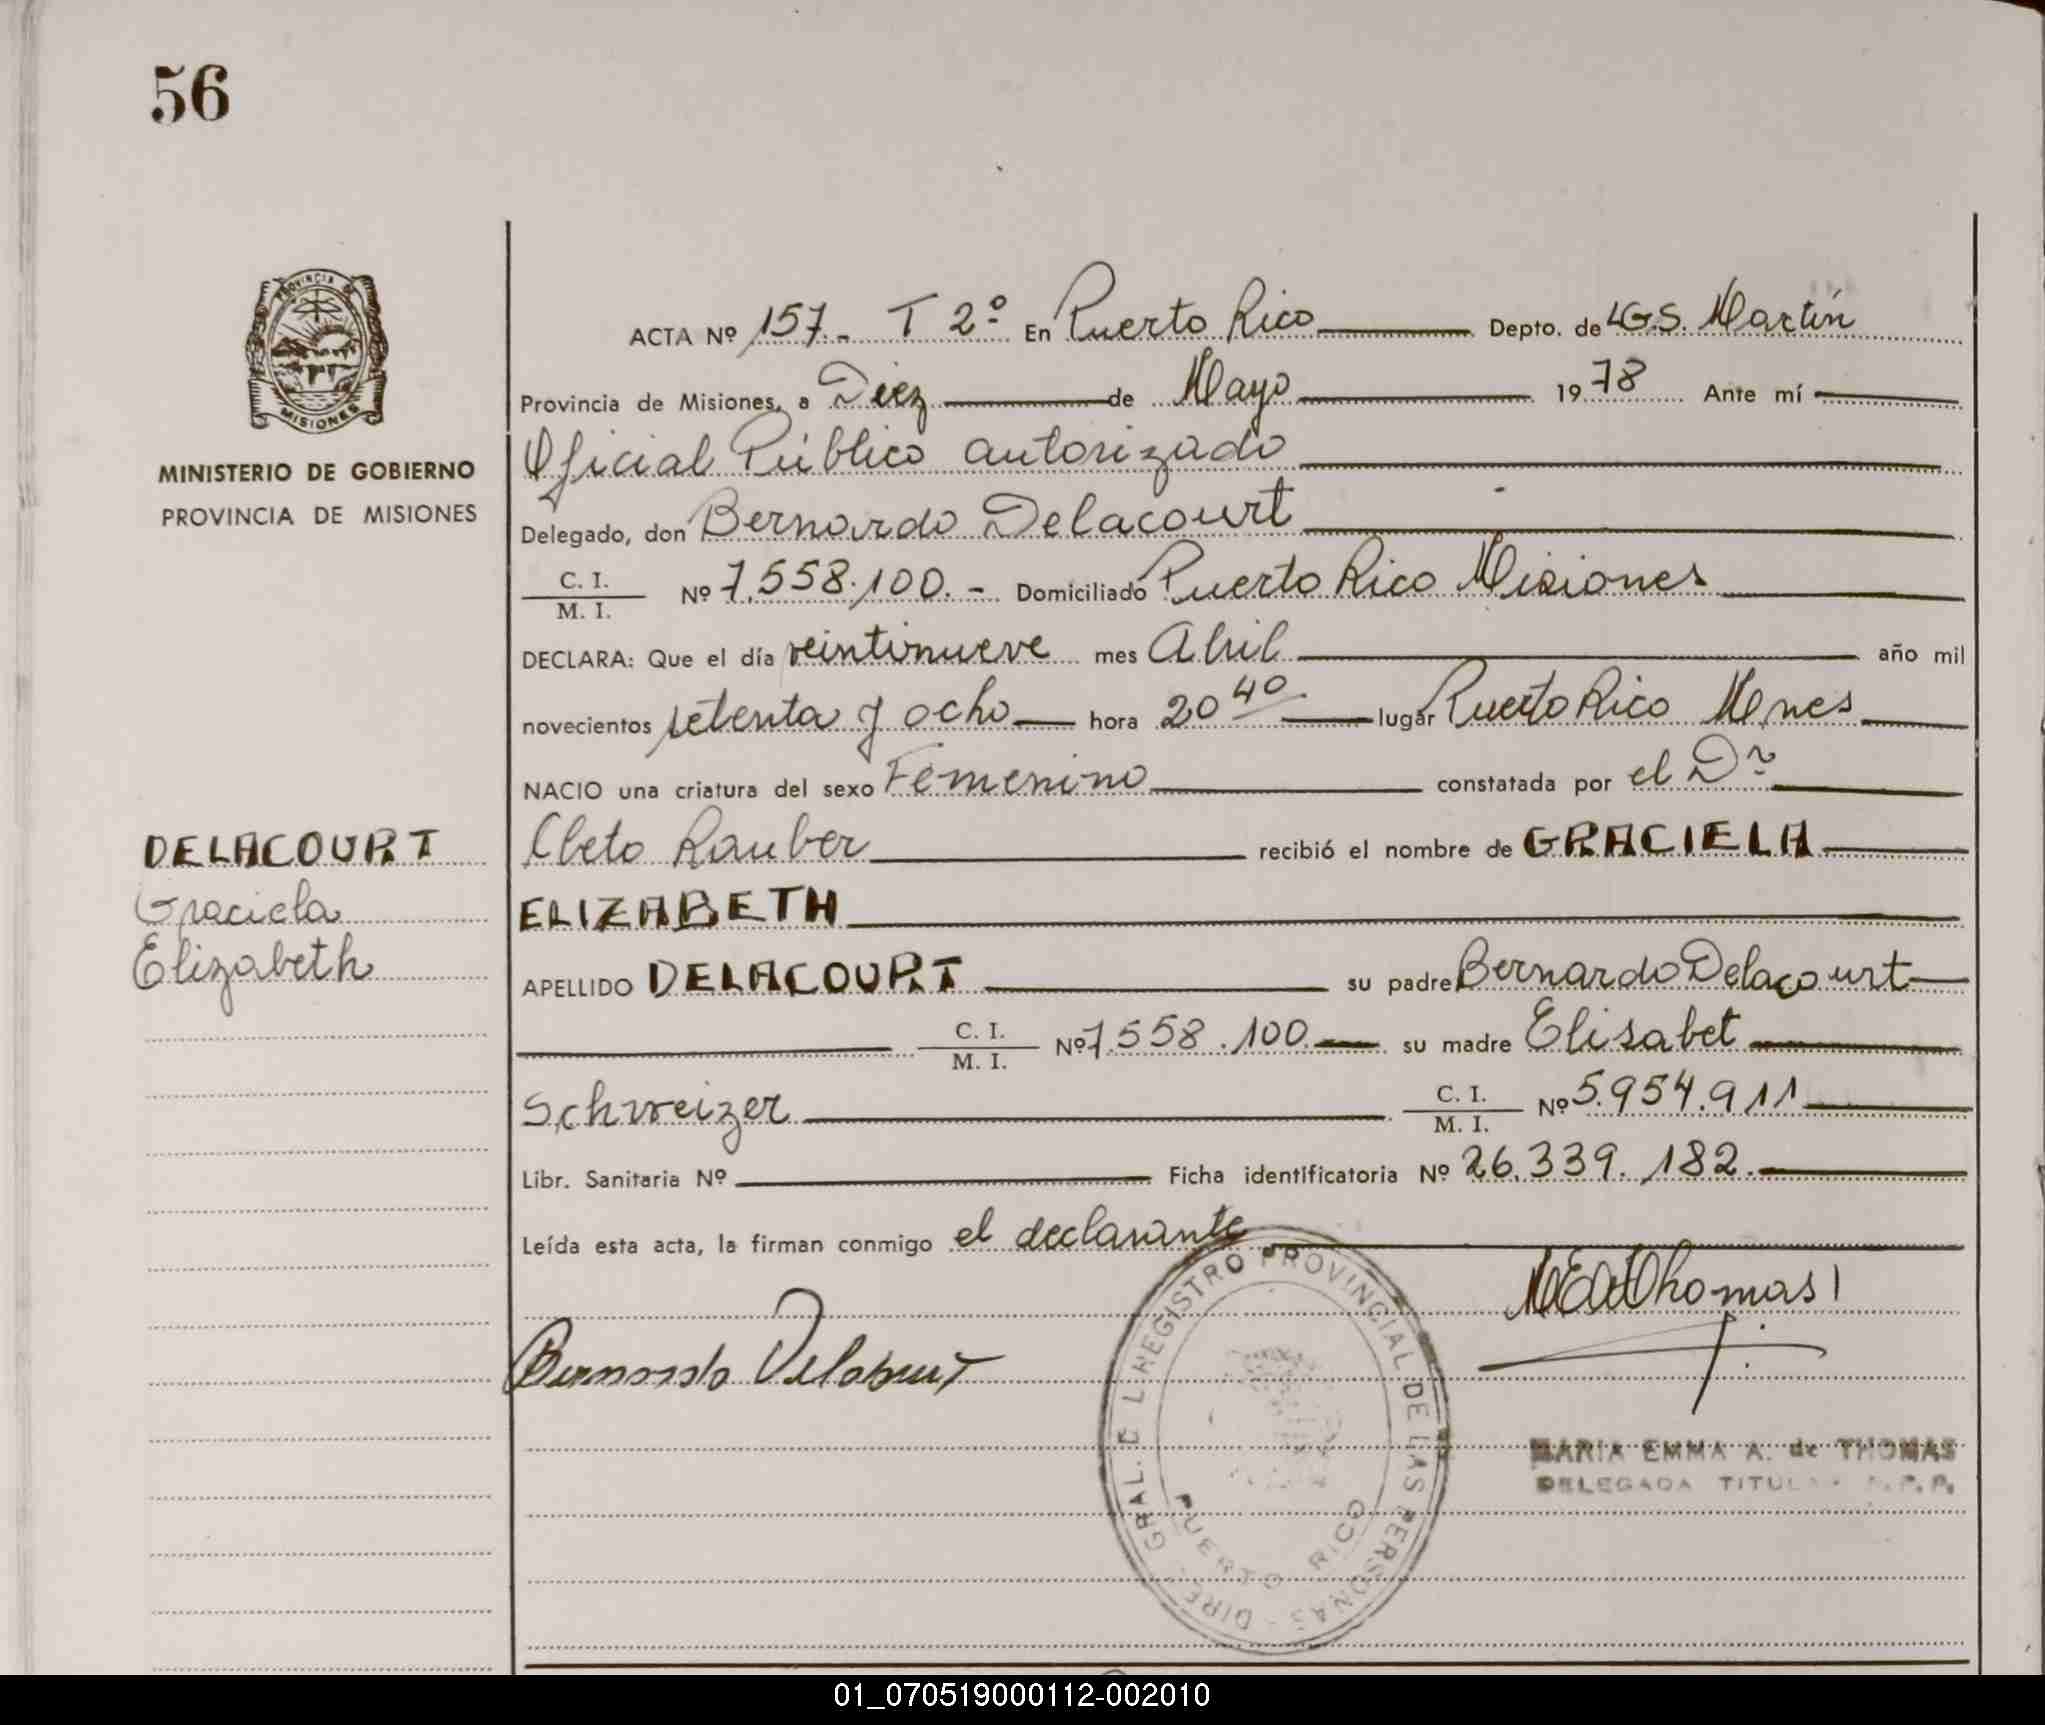 56
PROVINCIA DE
MISIONES
MINISTERIO DE GOBIERNO
PROVINCIA DE MISIONES
DELACOURT
Graciela
Elizabeth
ACTA Nº 157.- T 2º En Puerto Rico Depto. de LG.S. Martín
Provincia de Misiones, a Diez de Mayo 1978 Ante mí
Oficial Público autorizado
Delegado, don Bernardo Delacourt
C. I. / M. I. Nº 7.558.100.- Domiciliado Puerto Rico Misiones
DECLARA: Que el día veintinueve mes Abril año mil
novecientos setenta y ocho hora 20 40 lugar Puerto Rico Mnes
NACIO una criatura del sexo Femenino constatada por el Dr
Cleto Rauber recibió el nombre de GRACIELA
ELIZABETH
APELLIDO DELACOURT su padre Bernardo Delacourt
C. I. / M. I. Nº 7.558.100 su madre Elisabet
Schweizer C. I. / M. I. Nº 5.954.911
Libr. Sanitaria Nº Ficha identificatoria Nº 26.339.182.
Leída esta acta, la firman conmigo el declarante
MEAdThomas
Bernardo Delacourt
DIRE. GRAL. DEL REGISTRO PROVINCIAL DE LAS PERSONAS -
PUERTO RICO
MARIA EMMA A. de THOMAS
DELEGADA TITULAR R.P.P.
01_070519000112-002010